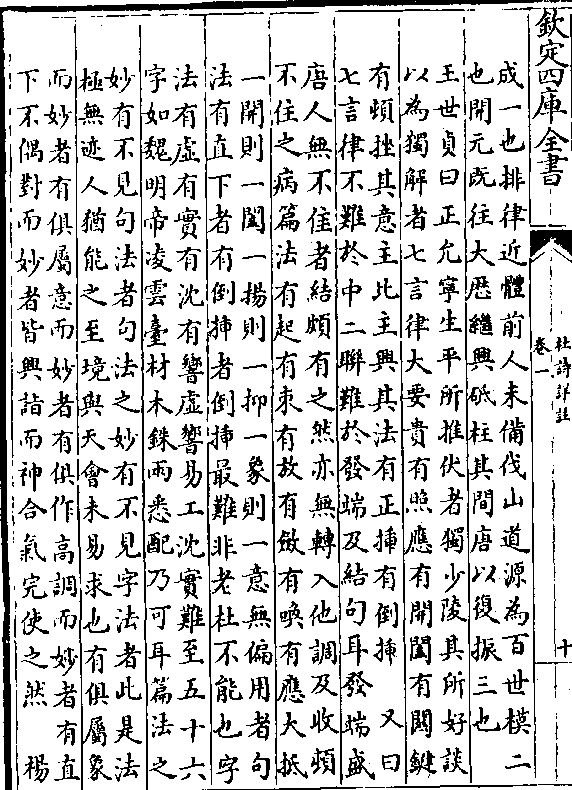 欽定四庫全書
杜詩詳註
卷一
十
成一也排律近體前人未備伐山道源為百世模二
也開元既往大厯繼興砥柱其間唐以復振三也
王世貞曰正允寧生平所推伏者獨少陵其所好談
以為獨解者七言律大要貴有照應有開闔有關鍵
有頓挫其意主比主興其法有正挿有倒挿　又曰
七言律不難於中二聯難於發端及結句耳發端盛
唐人無不佳者結頗有之然亦無轉入他調及收頓
不住之病篇法有起有束有放有斂有喚有應大抵
一開則一闔一揚則一抑一象則一意無偏用者句
法有直下者有倒挿者倒挿最難非老杜不能也字
法有虛有實有沈有響虛響易工沈實難至五十六
字如魏明帝凌雲臺材木銖兩悉配乃可耳篇法之
妙有不見句法者句法之妙有不見字法者此是法
極無迹人猶能之至境與天會未易求也有俱屬象
而妙者有俱屬意而妙者有俱作高調而妙者有直
下不偶對而妙者皆興詣而神合氣完使之然　楊